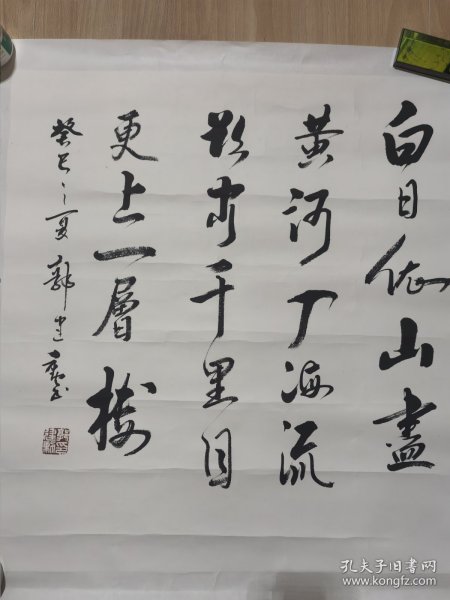 白日依山盡
黄河入海流
欲穷千里目
更上一層樓
癸巳之夏 郭建
孔夫子旧书网
www.kongfz.com